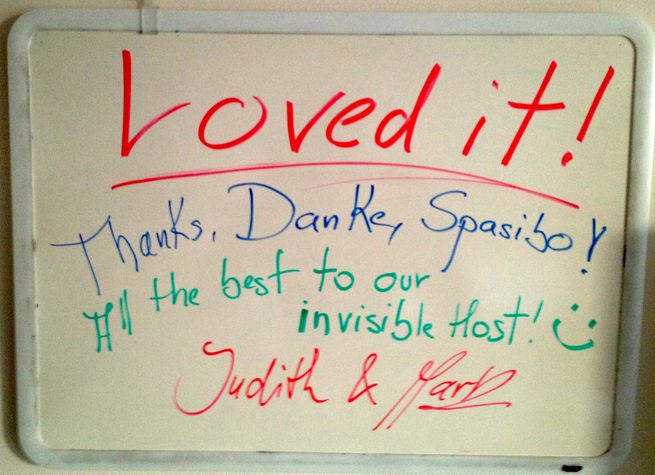 Loved it!
Thanks, Danke, Spasibo!
All the best to our
invisible Host! :)
Judith & Mark